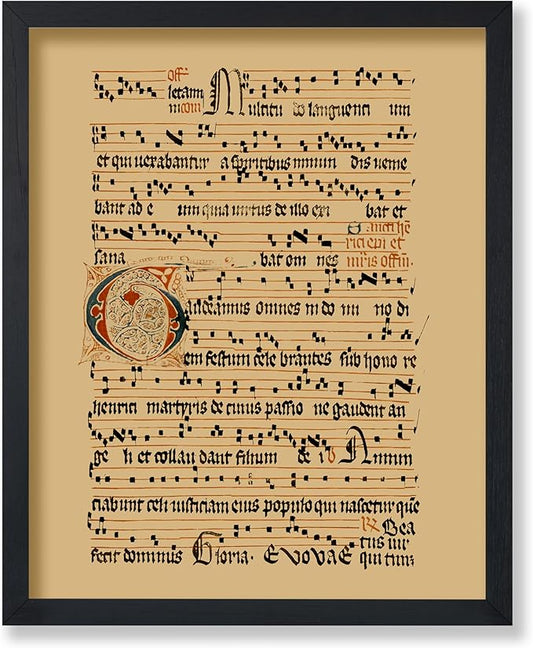 Off.
letam
in com Multitu do languenti um
et qui uexabantur a spiritibus inmun dis ueme
bant ad e um quia uirtus de illo exi bat et
Sancti he
rici epi et
sana bat om nes mris offm.
Gaudeamus omnes in do mi no di
em festum cele brantes sub hono re
henrici martyris de cuius passio ne gaudent an
ge li et collau dant filium de i v Annun
ciabunt celi iusticiam eius populo qui nascetur que
R Bea
tus uir
fecit dominus Gloria. EVOVAE qui tim